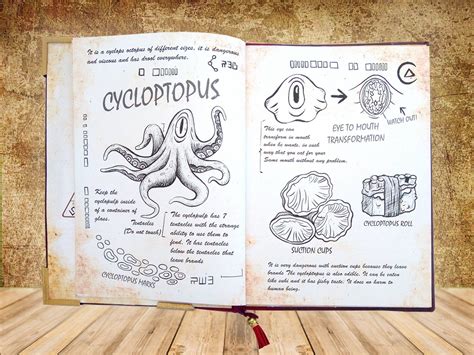 It is a cyclops octopus of different sizes, it is dangerous
and viscous and has drool everywhere.
CYCLOPTOPUS
Keep the
cyclopulp inside
of a container of
glass.
Tentacles
(Do not touch)
The cyclopulp has 7
tentacles with the strange
ability to use them to
fend. It has tentacles
below the tentacles that
leave brands
CYCLOPTOPUS MARKS
This eye can
transform in mouth
when he wants, in such
way that you eat for your
same mouth without any problem.
EYE TO MOUTH
TRANSFORMATION
WATCH OUT!
SUCTION CUPS
CYCLOPTOPUS ROLL
It is very dangerous with suction cups because they leave
brands. The cycloptopus is also edible. It can be eaten
like sushi and it has fishy taste. It does no harm to
human being.